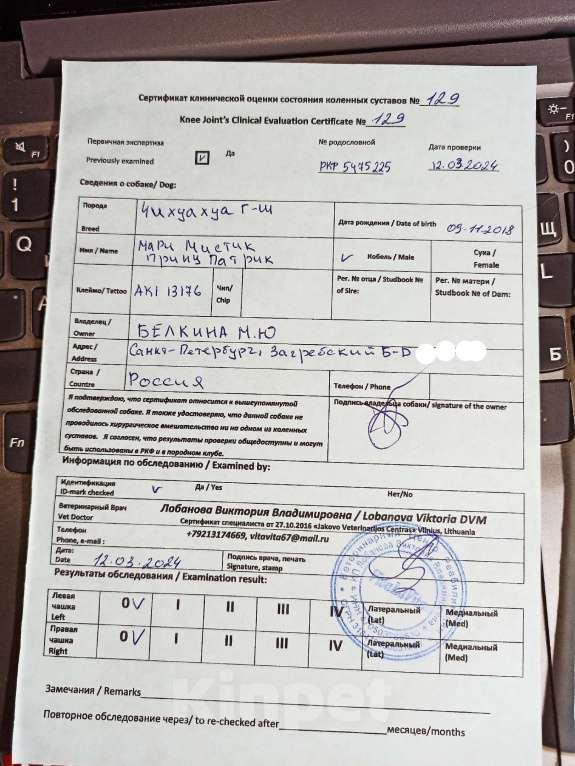 Сертификат клинической оценки состояния коленных суставов № 129
Knee Joint's Clinical Evaluation Certificate № 129
Первичная экспертиза
Previously examined
V
Да
№ родословной
РКФ 5475225
Дата проверки
12.03.2024
Сведения о собаке/ Dog:
Порода
Breed
Чихуахуа г-ш
Дата рождения / Date of birth 09.11.2018
Имя / Name
Мари Мистик
Принц Патрик
V Кобель / Male
Сука /
Female
Клеймо/ Tattoo
AKI 13176
Чип/
Chip
Рег. № отца / Studbook №
of Sire:
Рег. № матери /
Studbook № of Dam:
Владелец /
Owner
БЕЛКИНА М.Ю
Адрес/
Address
Санкт-Петербург, Загребский Б-р
Страна /
Countre
Россия
Телефон / Phone
Я подтверждаю, что сертификат относится к вышеупомянутой
обследованной собаке. Я также удостоверяю, что данной собаке не
проводилось хирургическое вмешательство ни на одном из коленных
суставов. Я согласен, что результаты проверки общедоступны и могут
быть использованы в РКФ и в породном клубе.
Подпись владельца собаки/ signature of the owner
Информация по обследованию / Examined by:
Идентификация
ID-mark checked
V
Да / Yes
Нет/No
Ветеринарный Врач
Vet Doctor
Лобанова Виктория Владимировна / Lobanova Viktoria DVM
Сертификат специалиста от 27.10.2016 «Jakovo Veterinarijos Centras» Vilnius, Lithuania
Телефон
Phone, e-mail :
+79213174669, vitavita67@mail.ru
Дата:
Date
12.03.2024
Подпись врача, печать
Signature, stamp
Результаты обследования / Examination result:
Левая
чашка
Left
0 V
I
II
III
IV
Латеральный
(Lat)
Медиальный
(Med)
Правая
чашка
Right
0 V
I
II
III
IV
Латеральный
(Lat)
Медиальный
(Med)
Замечания / Remarks
Kinpet
Повторное обследование через/ to re-checked after
месяцев/months